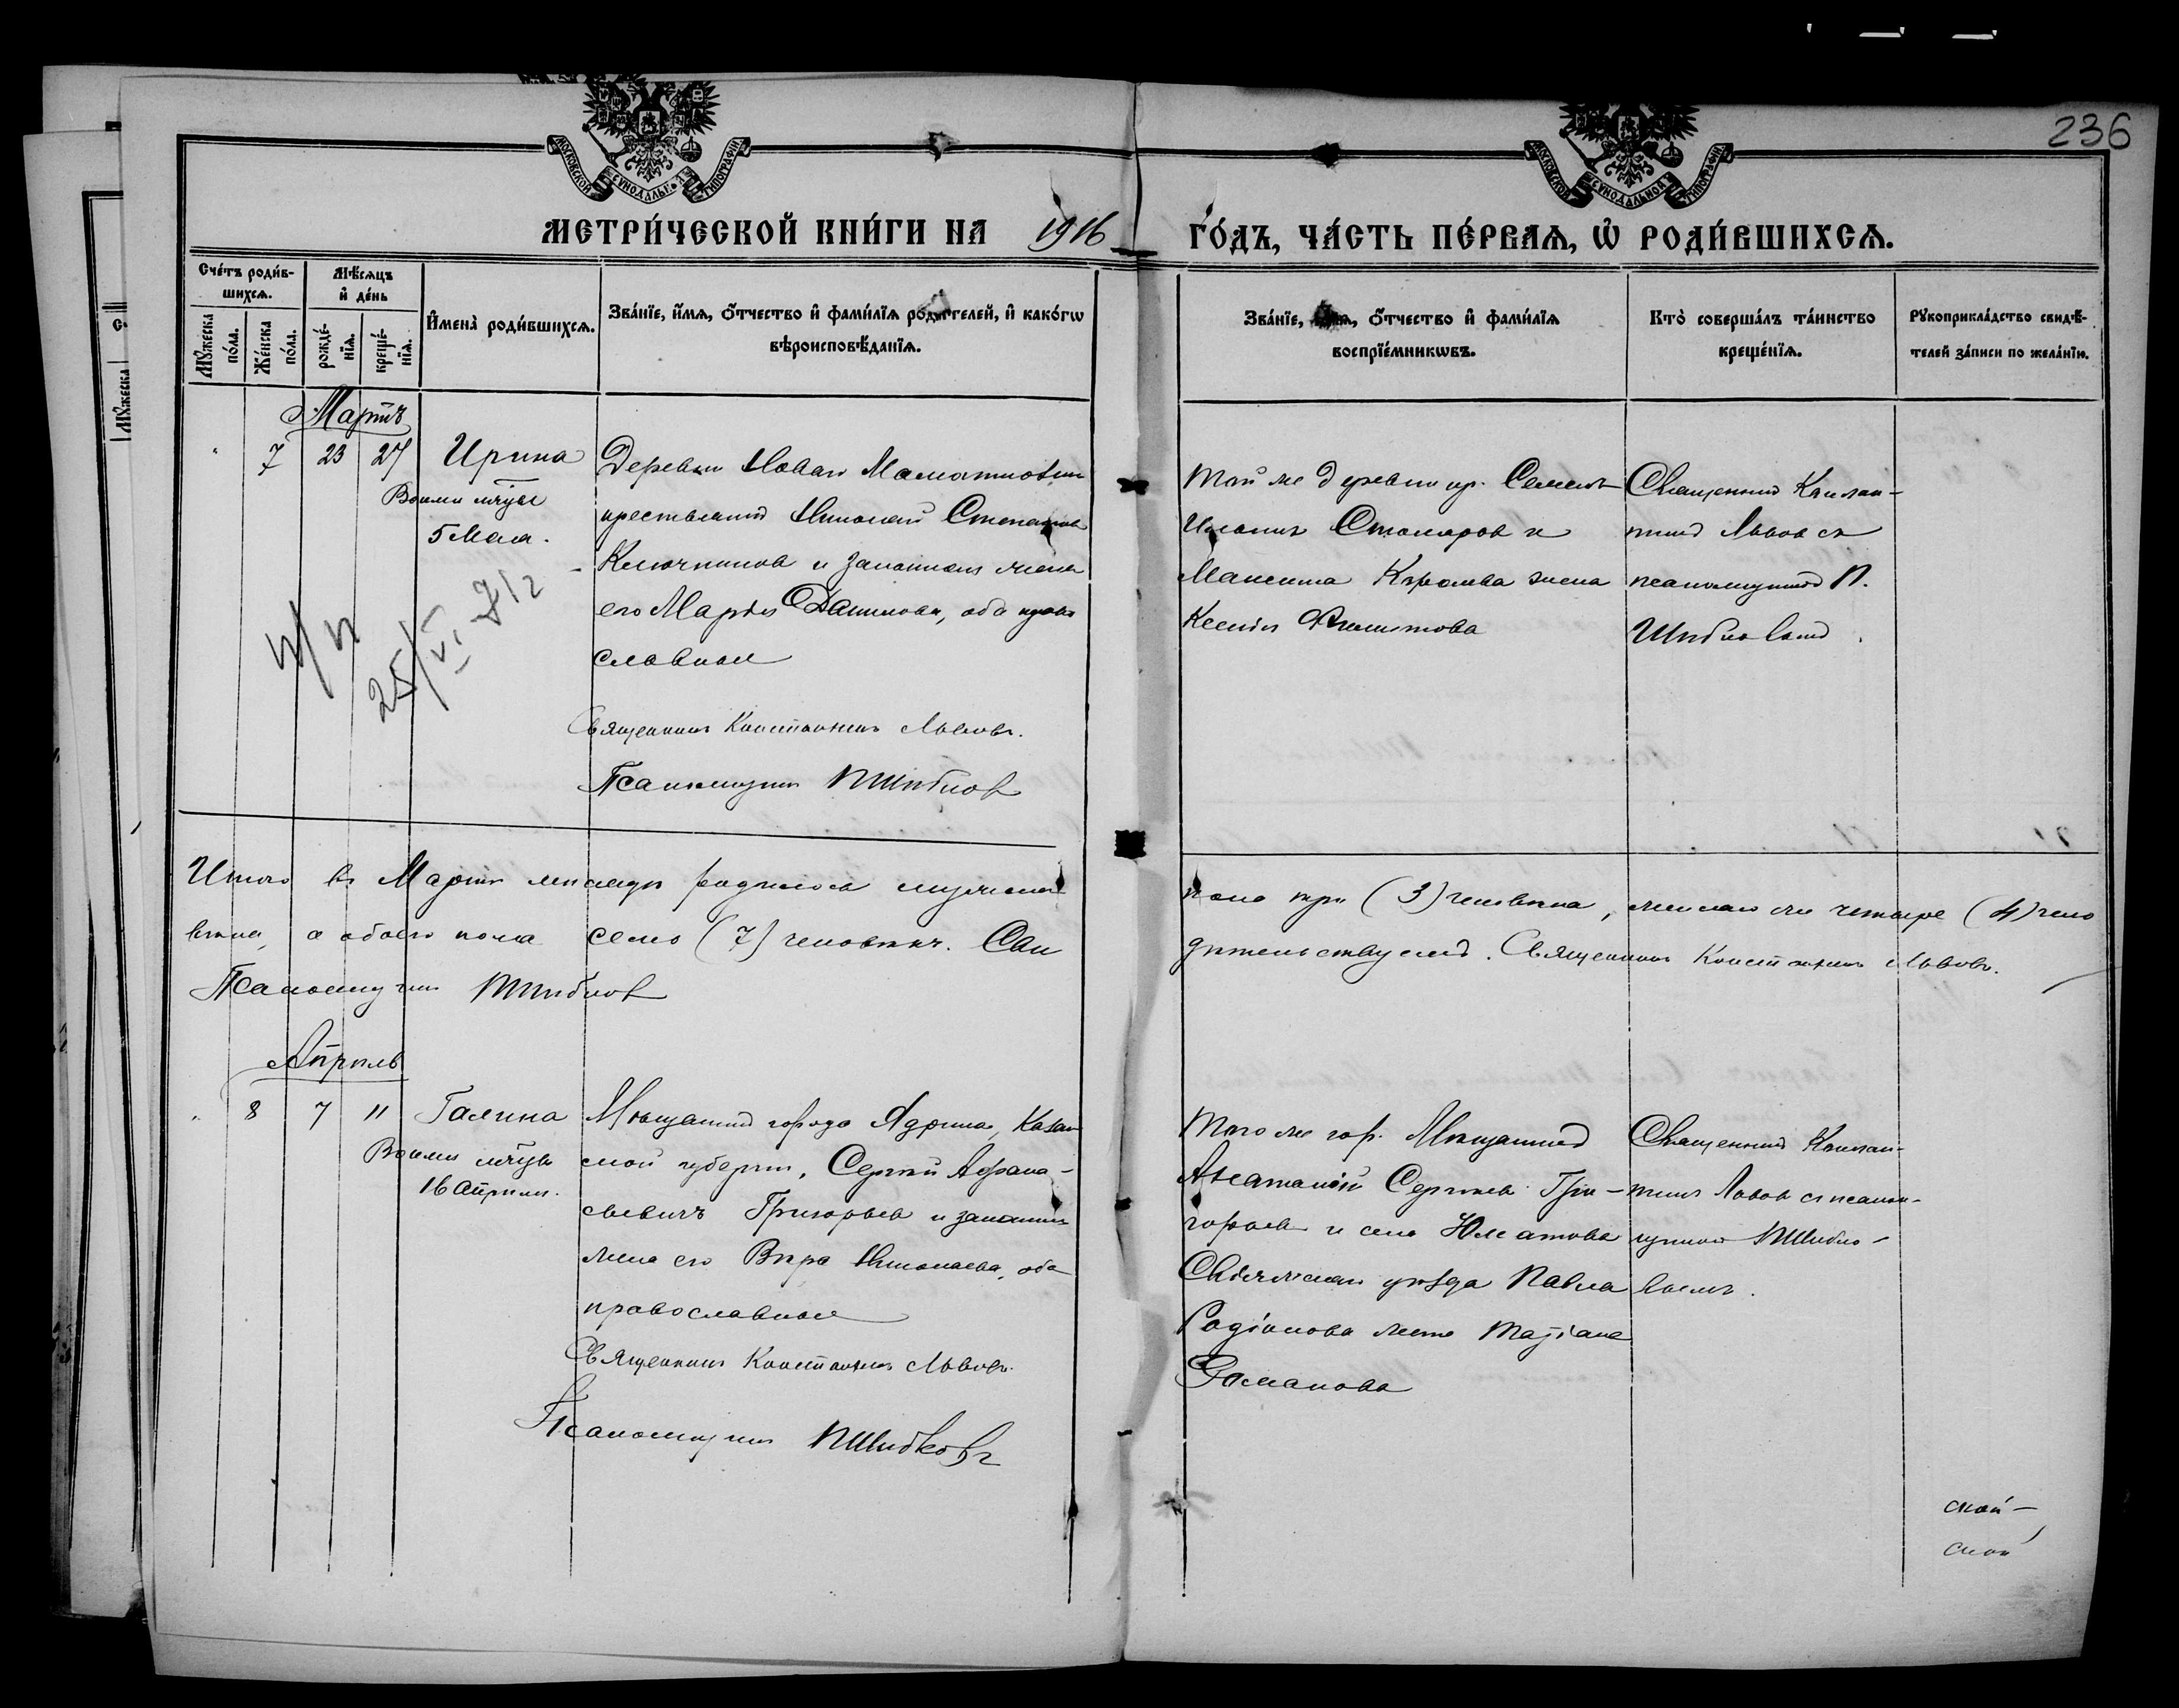 236
МОСКОВСКОЙ СѴНОДАЛЬНОЙ ТИПОГРАФІИ
МОСКОВСКОЙ СѴНОДАЛЬНОЙ ТИПОГРАФІИ
МЕТРИ́ЧЕСКОЙ КНИ́ГИ НА 1916 ГО́ДЪ, ЧА́СТЬ ПЕ́РВАЯ, Ѡ РОДИ́ВШИХСЯ.
Сче́тъ роди́в-
шихся.
Мꙋ́жеска
по́ла.
Же́нска
по́ла.
Мѣ́сяцъ
и де́нь
рожде́-
нїя.
креще́-
нїя.
Имена̀ роди́вшихся.
Зва́нїе, и́мя, о́тчество и фами́лїя роди́телей, и како́гѡ
вѣроисповѣ́данїя.
Зва́нїе, и́мя, о́тчество и фами́лїя
воспрїе́мникѡвъ.
Кто̀ соверша́лъ та́инство
креще́нїя.
Рꙋкоприкла́дство свидѣ́-
телей за́писи по жела́нїю.
Мартъ
7 23 27 Ирина
Во имя мчцы
5 Мая.
25/VI
Деревни Новаго
крестьянинъ Николай Степановъ
Ключниковъ и законная жена
его Марѳа Данилова, оба право
славные
Священникъ Константинъ Львовъ.
Псаломщикъ П Шибковъ
Той же деревни кр. Семенъ
Столяровъ и
Максима Королева жена
Ксенія Филиппова
Священникъ Констан-
тинъ Львовъ съ
псаломщикомъ П.
Шибковымъ.
Итого въ Мартѣ месяцѣ родилося мужеска
пола три (3) человека, женскаго же четыре (4) чело
века, а обоего пола семь (7) человекъ. Сви
дѣтельствуемъ. Священникъ Константинъ Львовъ.
Псаломщикъ П Шибковъ
Апрель
8 7 11 Галина
Во имя мчцы
16 Апреля.
Мѣщанинъ города Ядрина, Казан
ской губерніи, Сергѣй Афана-
сьевичъ Григорьевъ и законная
жена его Вѣра Николаева, оба
православные
Священникъ Константинъ Львовъ.
Псаломщикъ П Шибковъ
Того же гор. Мѣщанинъ
Анатолій Сергѣевъ Гри-
горьевъ и села Юматова
Свіяжскаго уѣзда Павла
Родіонова жена Татіана
Романова
Священникъ Констан-
тинъ Львовъ съ псалом-
щикомъ П Шибко-
вымъ.
ской-
ской